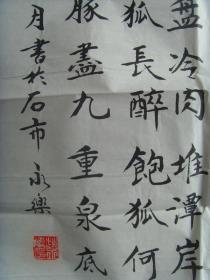 盘冷肉堆潭岸
狐長醉飽狐何
豚盡九重泉底
月書於石市永樂